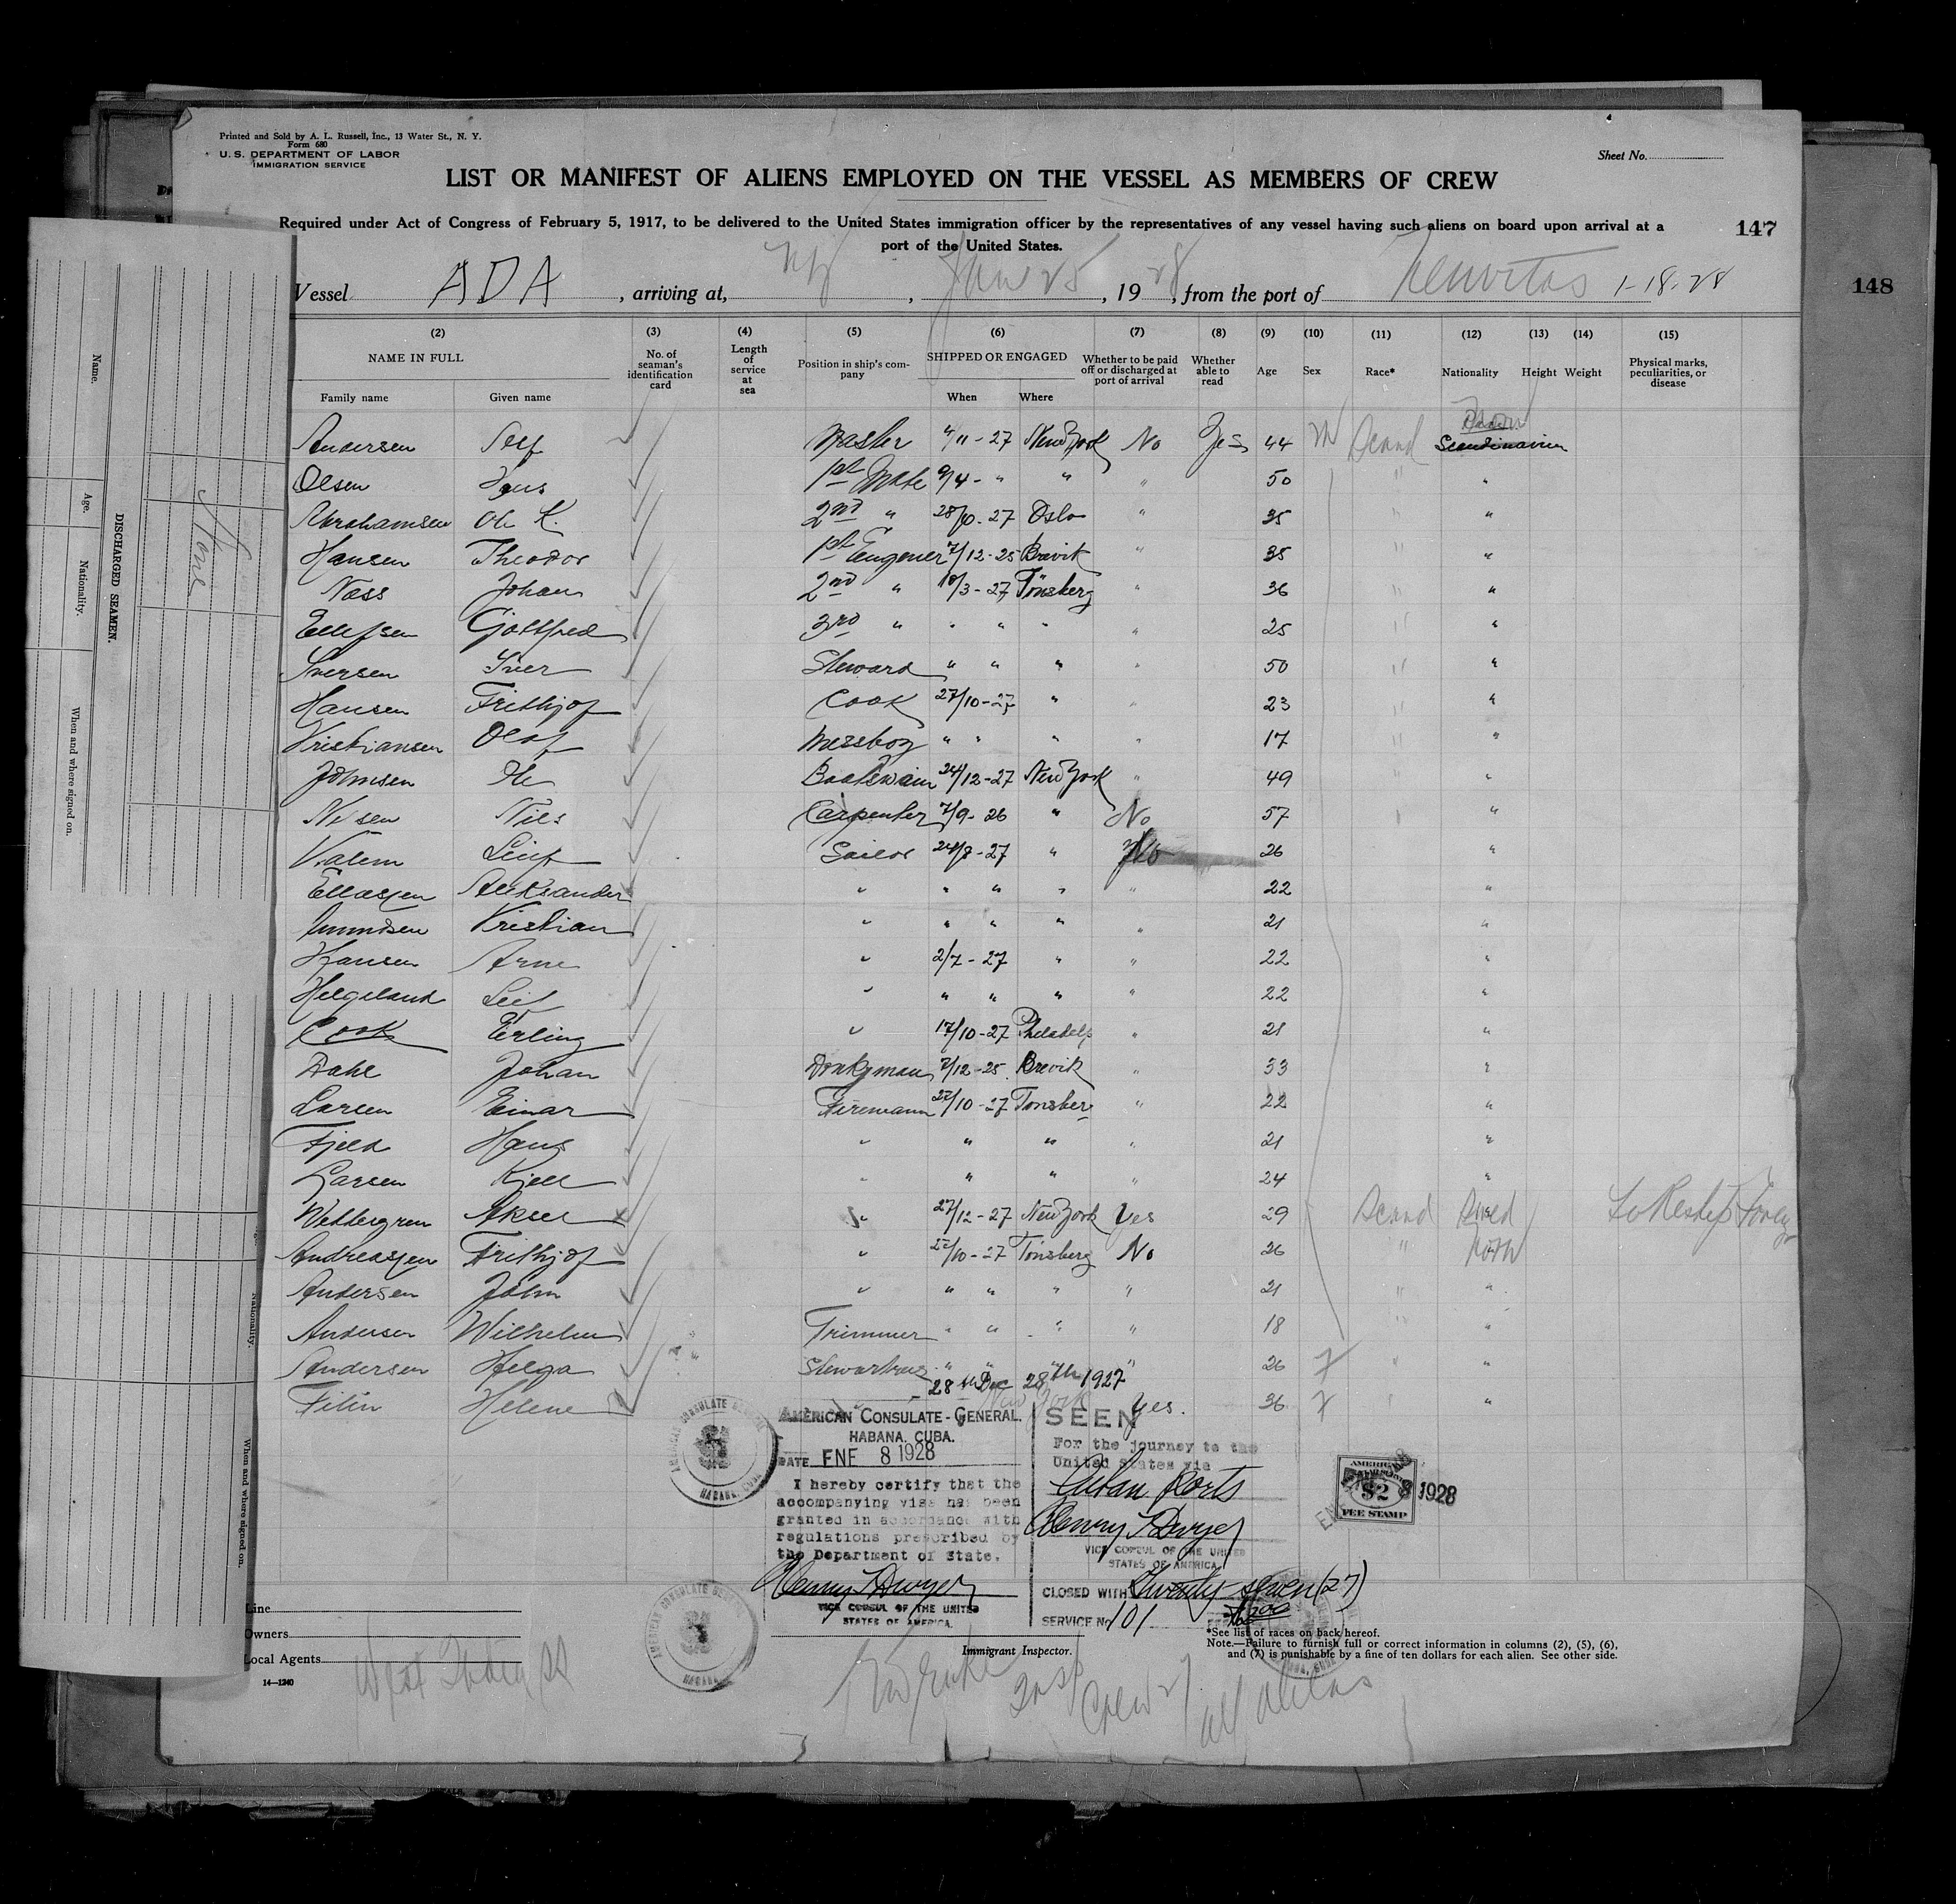 Printed and Sold by A. L. Russell, Inc., 13 Water St., N. Y.
Form 680
U. S. DEPARTMENT OF LABOR
IMMIGRATION SERVICE
Sheet No.
LIST OR MANIFEST OF ALIENS EMPLOYED ON THE VESSEL AS MEMBERS OF CREW
Required under Act of Congress of February 5, 1917, to be delivered to the United States immigration officer by the representatives of any vessel having such aliens on board upon arrival at a
port of the United States.
147
148
Vessel ADA, arriving at, NY, Jan 25, 1928, from the port of 1-18-28
(2) (3) (4) (5) (6) (7) (8) (9) (10) (11) (12) (13) (14) (15)
NAME IN FULL
Family name Given name
No. of seaman's identification card
Length of service at sea
Position in ship's company
SHIPPED OR ENGAGED
When Where
Whether to be paid off or discharged at port of arrival
Whether able to read
Age
Sex
Race*
Nationality
Height
Weight
Physical marks, peculiarities, or disease
Andersen Master 4/11-27 New York No Yes 44 M Scand Scandinavien
Olsen 1st Mate 9/4 - " " " 50 " "
Abrahamsen Ole K. 2nd " 28/6-27 Oslo " 35 " "
Hansen Theodor 1st Engener 7/12-25 Brevik " 35 " "
Nass Johan 2nd " 18/3-27 Tönsberg " 36 " "
Ellefsen Gottfred 3rd " " " " " 25 " "
Iversen Iver Steward " " " " 50 " "
Hansen Frithjof Cook 27/10-27 " " 23 " "
Kristiansen Olaf Messboy " " " " 17 " "
Johnsen Ole Boatswain 24/12-27 New York " 49 " "
Nilsen Nils Carpenter 7/9-26 " No 57 "
Valem Leif Sailor 24/8-27 " No 26 "
Eliassen Aleksander " " " " " 22 "
Amundsen Kristian " " " " " 21 "
Hansen Arne " 2/7-27 " " 22 "
Helgeland Leif " " " " " 22 "
Cook Erling " 17/10-27 Philadelp " 21 "
Dahl Johan Donkyman 7/12-25 Brevik " 33 "
Larsen Einar Firemann 27/10-27 Tonsberg " 22 "
Fjeld Hans " " " " 21 "
Larsen Kjell " " " " 24 "
Wettergren Aksel " 27/12-27 New York Yes 29 Scand Swed To Reship Foreign
Andreassen Frithjof " 27/10-27 Tönsberg No 26 " Norw
Andersen John " " " " " 21 " "
Andersen Wilhelm Trimmer " " " " 18 " "
Andersen Helga " " " 26 F " "
Helene 28th Dec 28th 1927 New York Yes. 36 F " "
AMERICAN CONSULATE-GENERAL.
HABANA. CUBA.
DATE ENE 8 1928
I hereby certify that the
accompanying visa has been
granted in accordance with
regulations prescribed by
the Department of State.
Henry T Dwyer
VICE CONSUL OF THE UNITED
STATES OF AMERICA.
SEEN
For the journey to the
United States via
Cuban Ports
Henry T Dwyer
VICE CONSUL OF THE UNITED
STATES OF AMERICA.
CLOSED WITH Twenty-seven (27)
SERVICE No 101
AMERICAN
$2
FEE STAMP
ENE 8 1928
AMERICAN CONSULATE GENERAL
HABANA, CUBA
AMERICAN CONSULATE GENERAL
HABANA
Line
Owners
Local Agents
14—1240
Immigrant Inspector.
*See list of races on back hereof.
Note.—Failure to furnish full or correct information in columns (2), (5), (6),
and (7) is punishable by a fine of ten dollars for each alien. See other side.
Insp
Crew 27
all aliens
DISCHARGED SEAMEN.
Name.
Age.
Nationality.
When and where signed on.
None
Nationality.
When and where signed on.